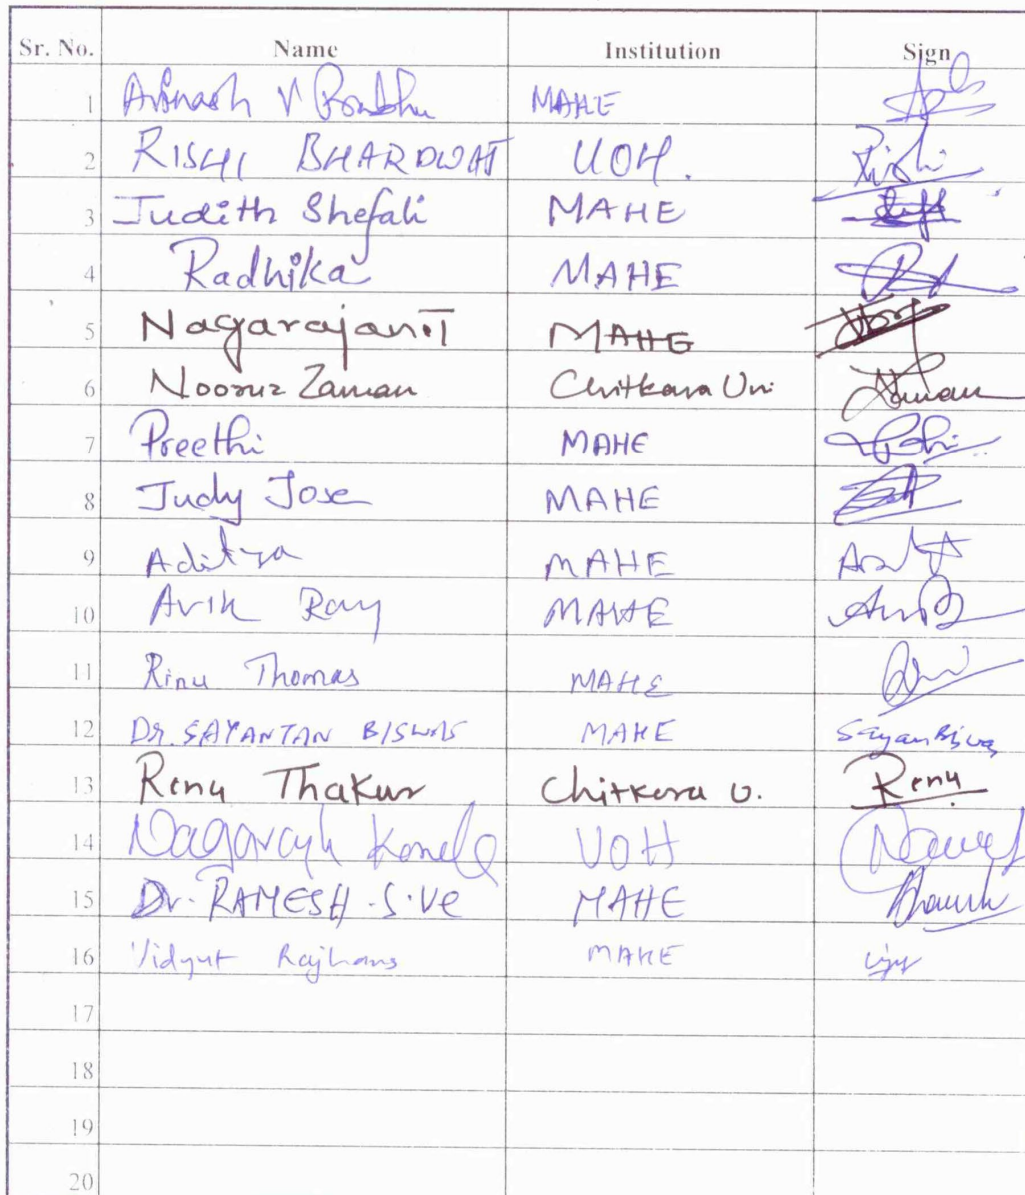 Sr. No. Name Institution Sign
1 Avinash V Prabhu MAHE
2 RISHI BHARDWAJ UOH. Rishi
3 Judith Shefali MAHE
4 Radhika MAHE
5 Nagarajan T MAHE
6 Nooruz Zaman Chitkara Uni Zaman
7 Preethi MAHE
8 Judy Jose MAHE
9 Aditya MAHE
10 Avik Roy MAHE
11 Rinu Thomas MAHE
12 Dr. SAYANTAN BISWAS MAHE Sayan Biswas
13 Renu Thakur Chitkara U. Renu
14 UOH
15 Dr. RAMESH .S.Ve MAHE
16 Vidyut Rajhans MAHE
17
18
19
20